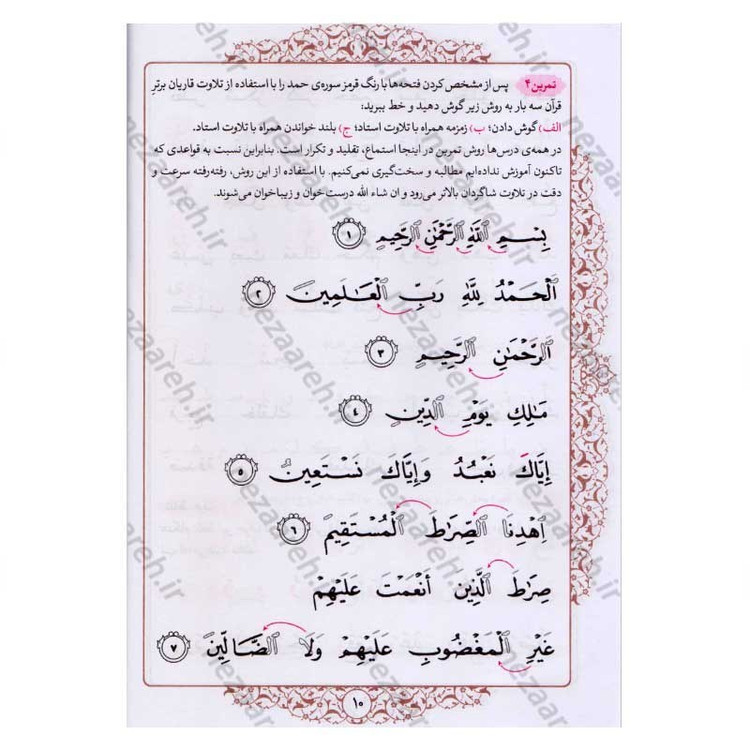 تمرین۴ پس از مشخص کردن فتحه‌ها با رنگ قرمز سوره‌ی حمد را با استفاده از تلاوت قاریان برترِ
قرآن سه بار به روش زیر گوش دهید و خط ببرید:
الف) گوش دادن؛ ب) زمزمه همراه با تلاوت استاد؛ ج) بلند خواندن همراه با تلاوت استاد.
در همه‌ی درس‌ها روش تمرین در اینجا استماع، تقلید و تکرار است. بنابراین نسبت به قواعدی که
تاکنون آموزش نداده‌ایم مطالبه و سخت‌گیری نمی‌کنیم. با استفاده از این روش، رفته‌رفته سرعت و
دقت در تلاوت شاگردان بالاتر می‌رود و ان شاء الله درست‌خوان و زیباخوان می‌شوند.
بِسْمِ اللَّهِ الرَّحْمَٰنِ الرَّحِیمِ ۱
اَلْحَمْدُ لِلَّهِ رَبِّ الْعَالَمِینَ ۲
اَلرَّحْمَٰنِ الرَّحِیمِ ۳
مَالِکِ یَوْمِ الدِّینِ ۴
اِیَّاکَ نَعْبُدُ وَ اِیَّاکَ نَسْتَعِینُ ۵
اِهْدِنَا الصِّرَاطَ الْمُسْتَقِیمَ ۶
صِرَاطَ الَّذِینَ أَنْعَمْتَ عَلَیْهِمْ
غَیْرِ الْمَغْضُوبِ عَلَیْهِمْ وَلَا الضَّالِّینَ ۷
۱۰
nezaareh.ir